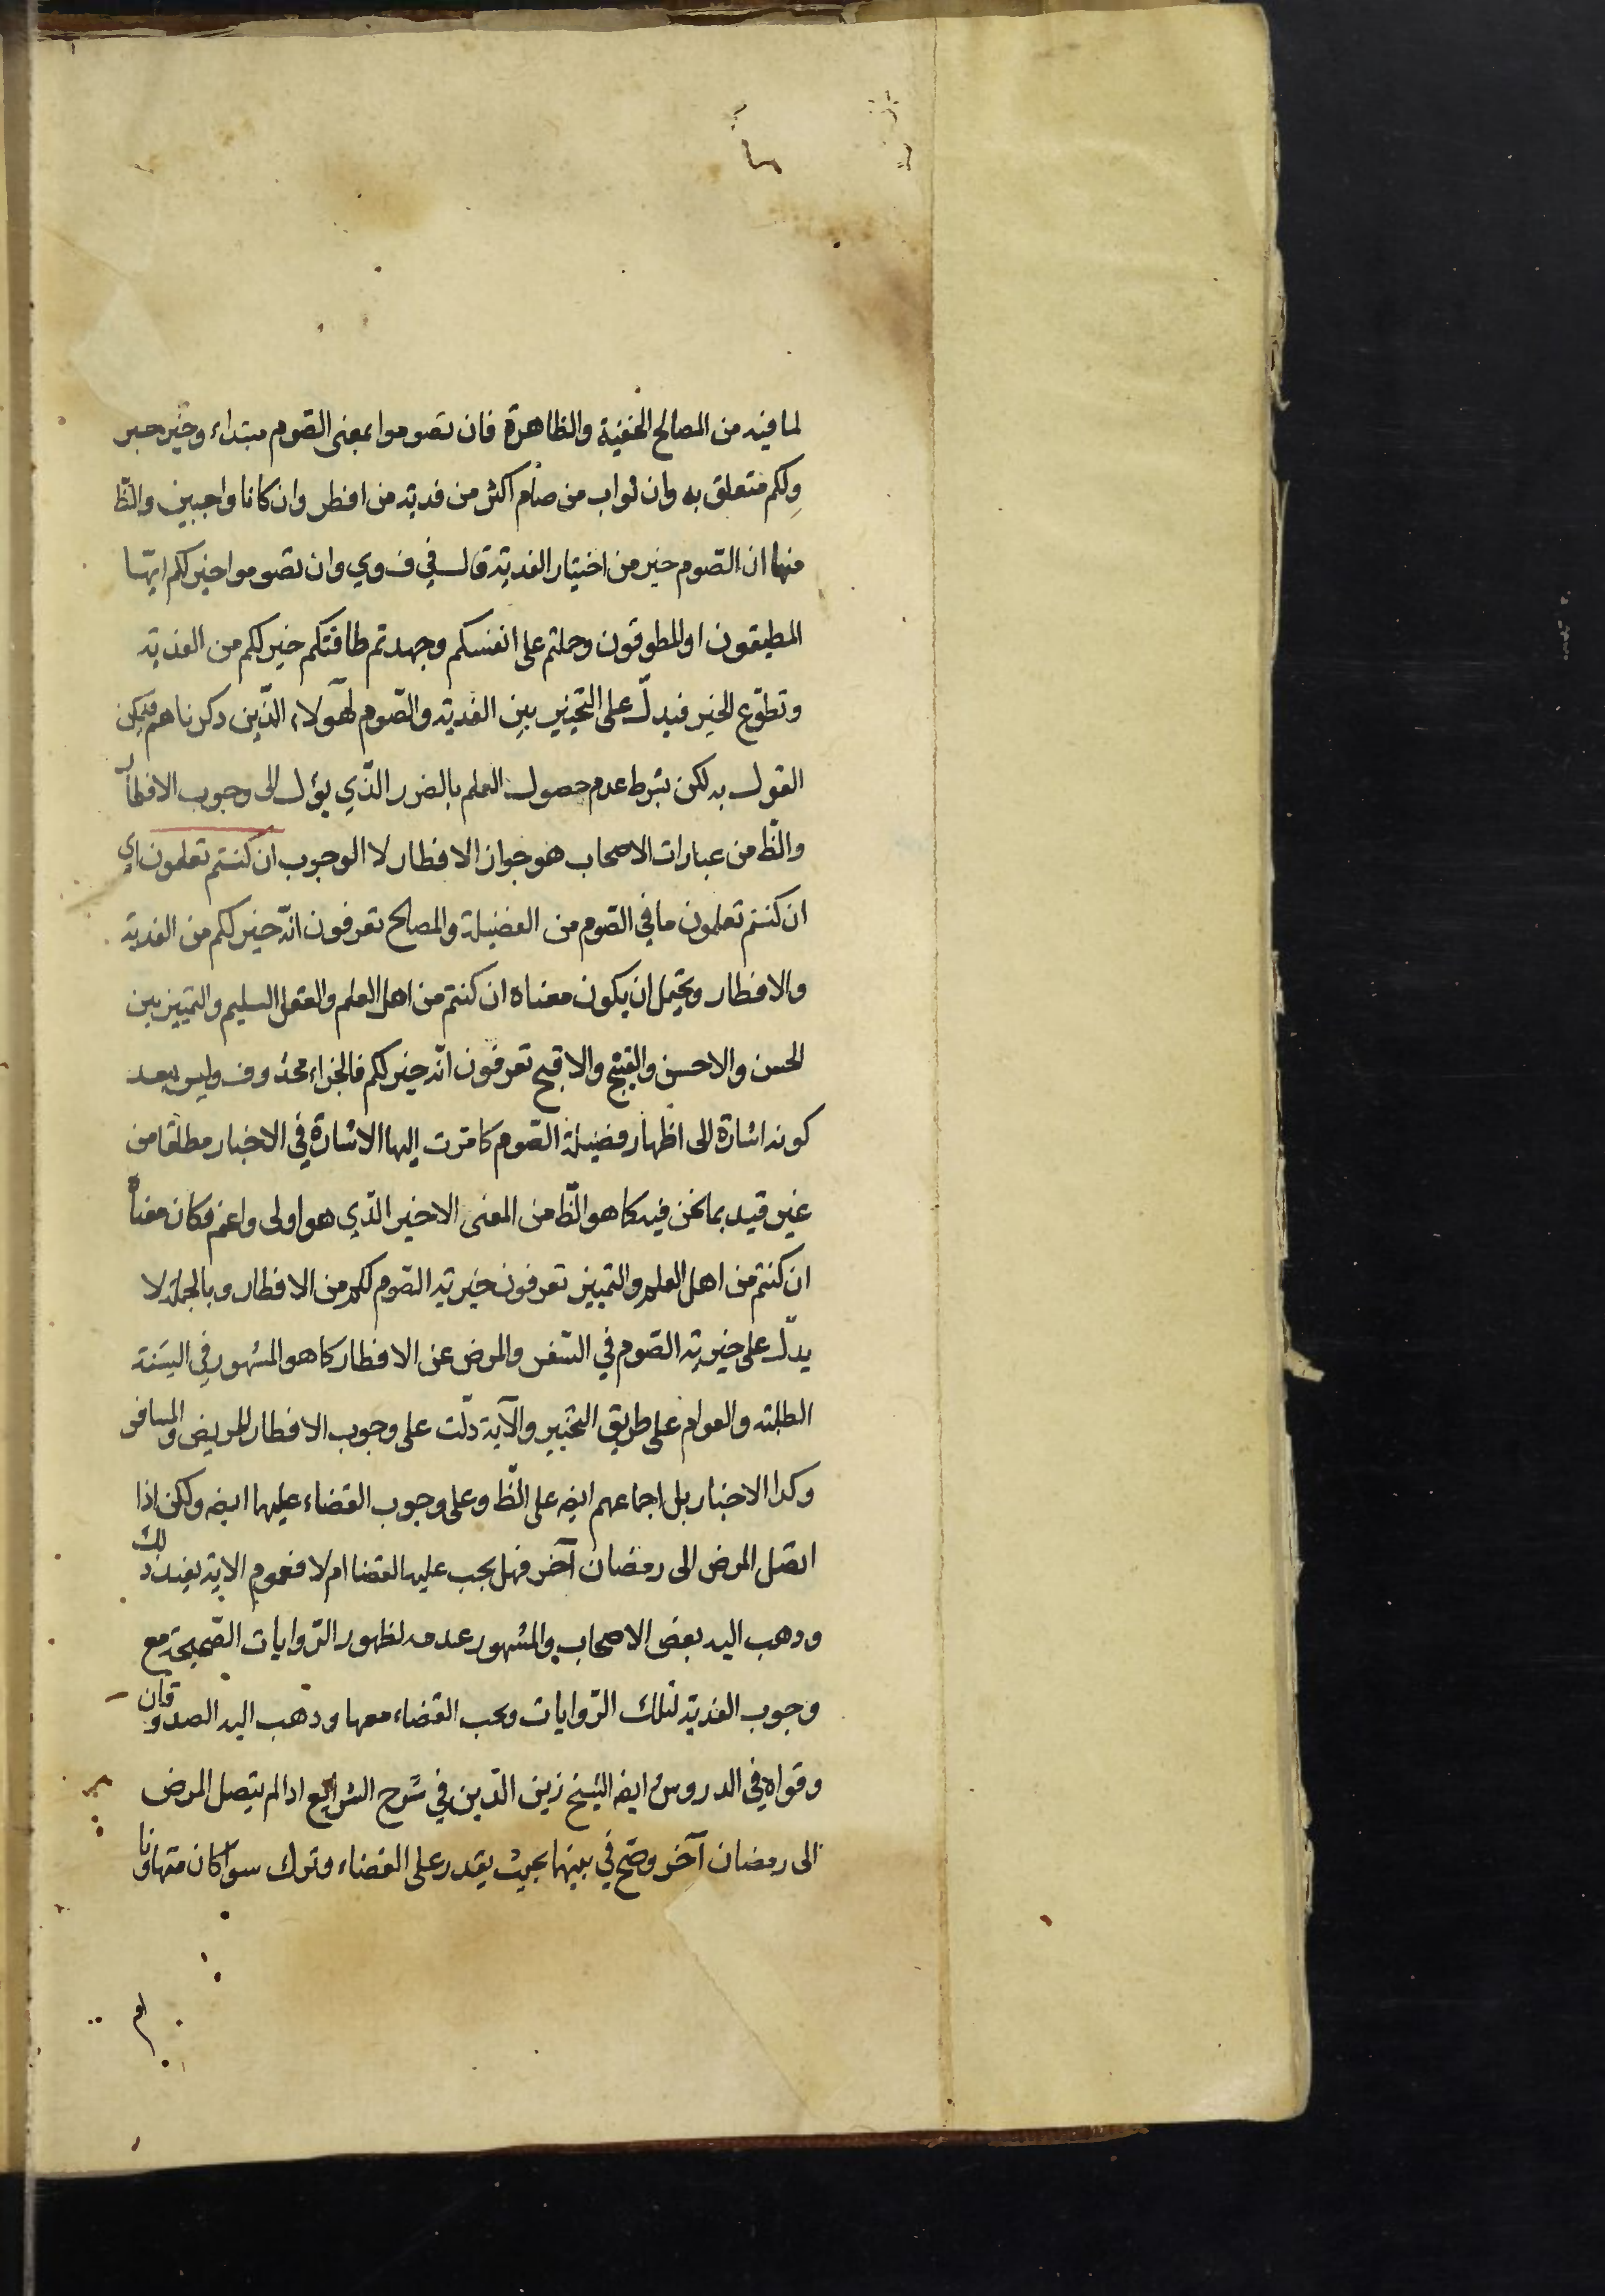 لما فيه من المصالح الخفية والظاهرة فان تصوموا بمعنى الصّوم مبتداء وخير خبر
ولكم متعلق به وان ثواب من صام اكثر من فدية من افطر وان كانا واجبين والظّ
منها ان الصّوم خير من اختيار الفدية قال في ف وي وان تصوموا خير لكم ايّها
المطيقون او المطوقون وحملتم على انفسكم وجهدتم طاقتكم خير لكم من الفدية
وتطوّع الخير فيدلّ على التخيير بين الفدية والصّوم لهؤلاء الذّين ذكرناهم فيمكن
القول به لكن بشرط عدم حصول العلم بالضرر الذّي يؤل الى وجوب الافطار
والظّ من عبارات الاصحاب هو جواز الافطار لا الوجوب ان كنتم تعلمون اي
ان كنتم تعلمون ما في الصّوم من الفضيلة والمصالح تعرفون انّه خير لكم من الفدية
والافطار ويحتمل ان يكون معناه ان كنتم من اهل العلم والعقل السليم والتمييز بين
الحسن والاحسن والقبيح والاقبح تعرفون انّه خير لكم فالجزاء محذوف وليس ببعيد
كونه اشارة الى اظهار فضيلة الصّوم كما مرت اليها الاشارة في الاخبار مطلقا من
غير قيد بما نحن فيه كما هو الظّ من المعنى الاخير الذّي هو اولى واعم فكان معناه
ان كنتم من اهل العلم والتمييز تعرفون خيرية الصّوم لكم من الافطار وبالجملة لا
يدلّ على خيرية الصّوم في السّفر والمرض عن الافطار كما هو المشهور في السنة
الطلبة والعوام على طريق التخيير والآية دلّت على وجوب الافطار للمريض والمسافر
وكذا الاخبار بل اجماعهم ايضه على الظّ وعلى وجوب القضاء عليهما ايضه ولكن اذا
اتصل المرض الى رمضان آخر فهل يجب عليه القضا ام لا فعموم الاية يفيد ذلك
وذهب اليه بعض الاصحاب والمشهور عدمه لظهور الرّوايات الصّحيحة مع
وجوب الفدية لتلك الرّوايات ويجب القضاء معها وذهب اليه الصدوقان
وقواه في الدروس ايضه الشيخ زين الدّين في شرح الشرايع اذا لم يتصل المرض
الى رمضان آخر وصّح في بينهما بحيث يقدر على القضاء وترك سواء كان متهاونا